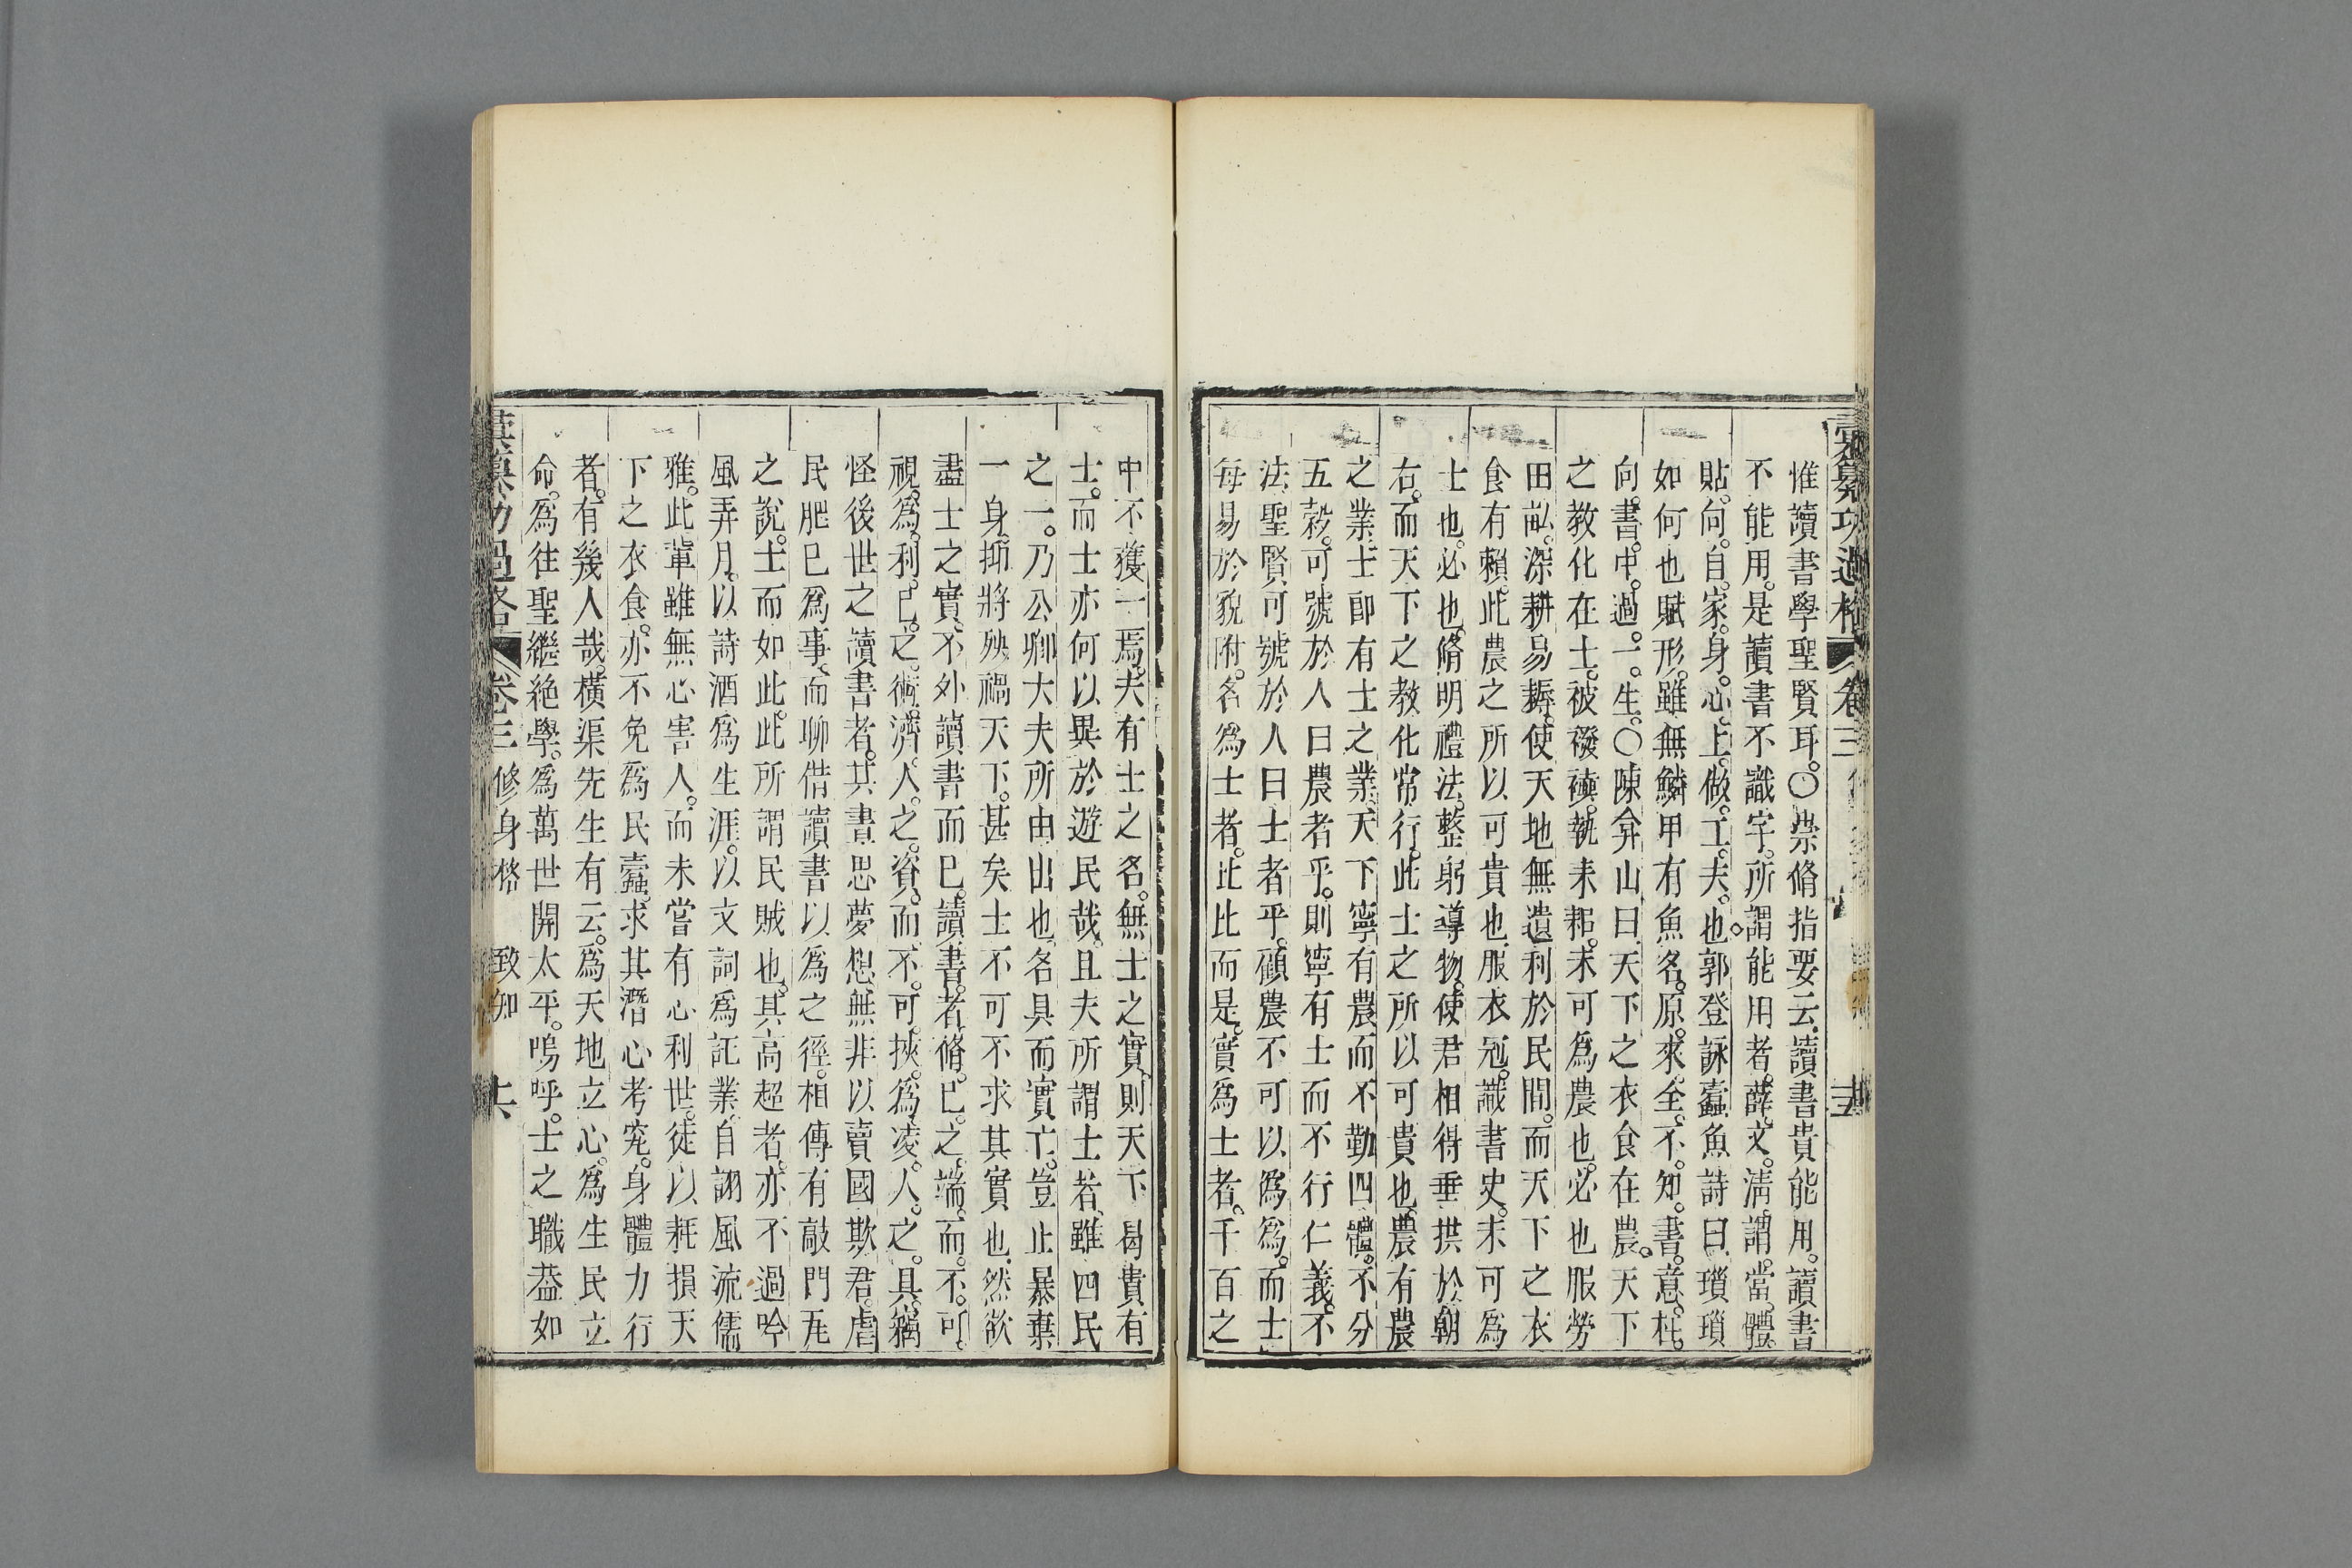 彙纂功過格 卷三
惟讀書學聖賢耳。○崇脩指要云。讀書貴能用。讀書
不能用。是讀書不識字。所謂能用者。薛。文。清。謂。當。體
貼。向。自。家。身。心。上。做。工。夫。也。郭登詠蠹魚詩曰。瑣瑣
如何也賦形。雖無鱗甲有魚名。原。來。全。不。知。書。意。枉。
向。書。中。過。一。生。○陳弇山曰。天下之衣食在農。天下
之教化在士。被襏襫。執耒耜。未可為農也。必也服勞
田畝。深耕易耨。使天地無遺利於民間。而天下之衣
食有賴。此農之所以可貴也。服衣冠。識書史。未可為
士也。必也。脩明禮法。整躬導物。使君相得垂拱於朝
右。而天下之教化常行。此士之所以可貴也。農有農
之業。士即有士之業。天下寧有農而不勤四體。不分
五穀。可號於人曰農者乎。則寧有士而不行仁義。不
法聖賢。可號於人曰士者乎。顧農不可以偽為。而士
每易於貌附。名為士者。比比而是。實為士者。千百之
中不獲一焉。夫有士之名。無士之實。則天下曷貴有
士。而士亦何以異於遊民哉。且夫所謂士者。雖四民
之一。乃公卿大夫所由出也。名具而實亡。豈止暴棄
一身。抑將殃禍天下。甚矣士不可不求其實也。然欲
盡士之實。不外讀書而已。讀書。者。脩。己。之。端。而。不。可。
視。為。利。己。之。術。濟。人。之。資。而。不。可。挾。為。凌。人。之。具。獨
怪後世之讀書者。其晝思夢想。無非以賣國欺君。虐
民肥已為事。而聊借讀書以為之徑。相傳有敲門瓦
之說。士而如此。此所謂民賊也。其高超者。亦不過吟
風弄月。以詩酒為生涯。以文詞為託業。自詡風流儒
雅。此輩雖無心害人。而未嘗有心利世。徒以耗損天
下之衣食。亦不免為民蠹。求其潛心考究。身體力行
者。有幾人哉。橫渠先生有云。為天地立心。為生民立
命。為往聖繼絕學。為萬世開太平。嗚呼。士之職蓋如
彙纂功過格 卷三 修身格 致知 十六